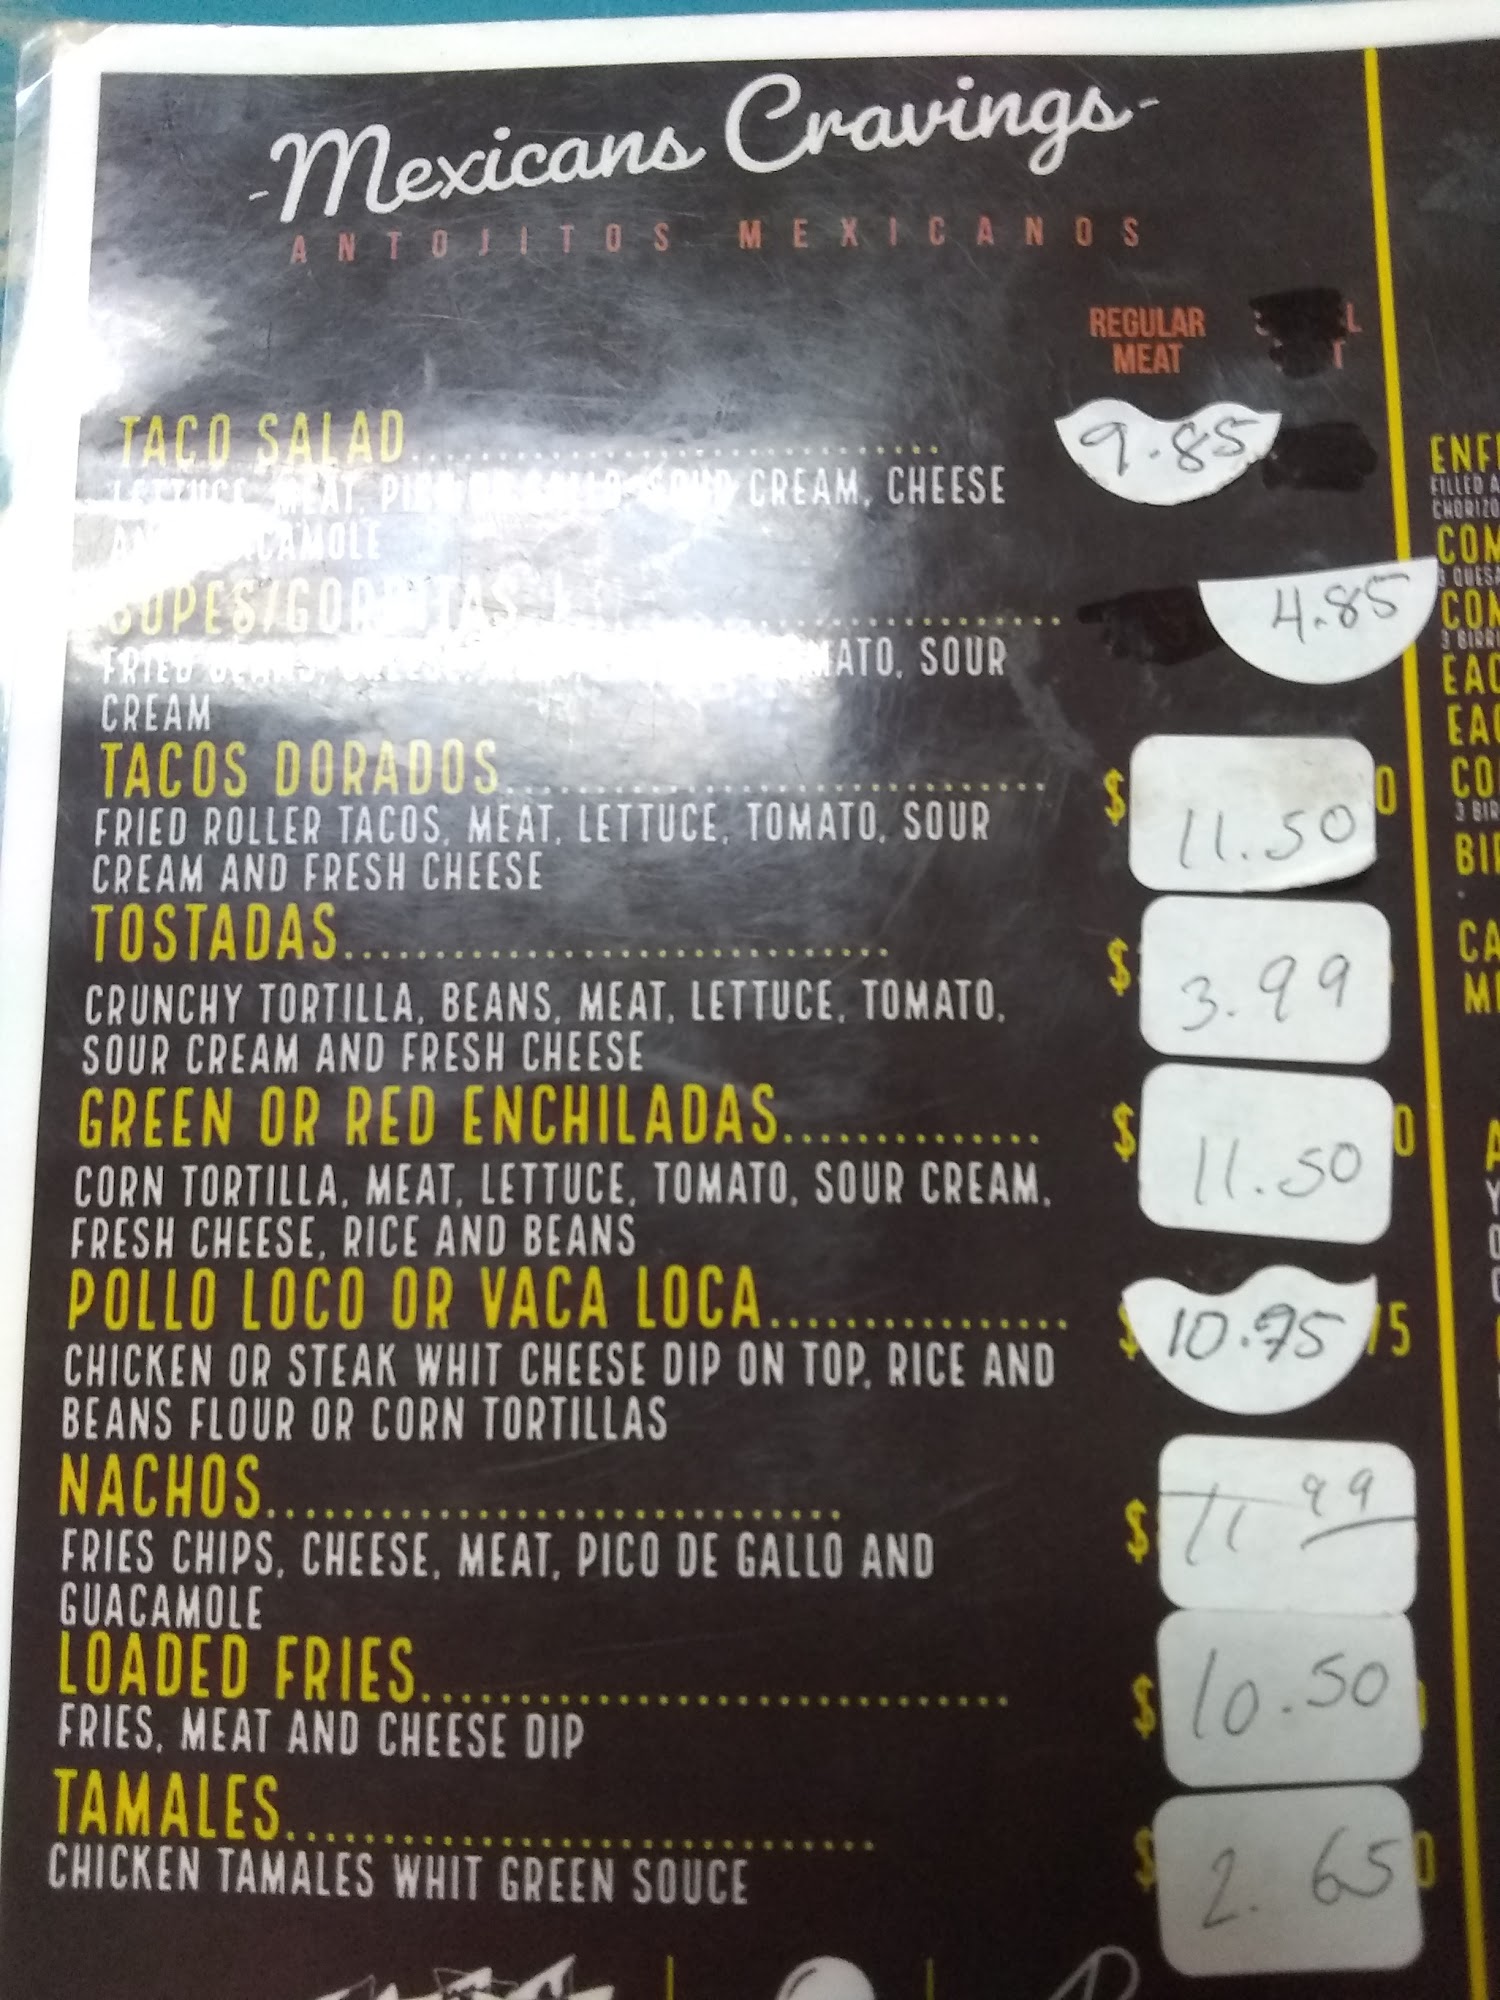 -Mexicans Cravings-
ANTOJITOS MEXICANOS
REGULAR
MEAT
TACO SALAD 9.85
LETTUCE, MEAT, CREAM, CHEESE
SOPES/GORDITAS 4.85
FRIED BEANS, TOMATO, SOUR
CREAM
TACOS DORADOS $ 11.50
FRIED ROLLER TACOS, MEAT, LETTUCE, TOMATO, SOUR
CREAM AND FRESH CHEESE
TOSTADAS $ 3.99
CRUNCHY TORTILLA, BEANS, MEAT, LETTUCE, TOMATO,
SOUR CREAM AND FRESH CHEESE
GREEN OR RED ENCHILADAS $ 11.50
CORN TORTILLA, MEAT, LETTUCE, TOMATO, SOUR CREAM,
FRESH CHEESE, RICE AND BEANS
POLLO LOCO OR VACA LOCA $ 10.95
CHICKEN OR STEAK WHIT CHEESE DIP ON TOP, RICE AND
BEANS FLOUR OR CORN TORTILLAS
NACHOS $ 11 99
FRIES CHIPS, CHEESE, MEAT, PICO DE GALLO AND
GUACAMOLE
LOADED FRIES $ 10.50
FRIES, MEAT AND CHEESE DIP
TAMALES $ 2.65
CHICKEN TAMALES WHIT GREEN SOUCE